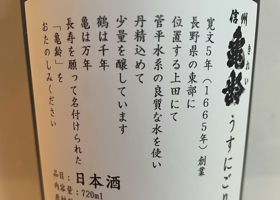 信州
亀齢
きれい
うすにごり
寛文5年(1665年)創業
長野県の東部に
位置する上田にて
菅平水系の良質な水を使い
丹精込めて
少量を醸しています
鶴は千年
亀は万年
長寿を願って名付けられた
「亀齢」を
おたのしみください
品目:日本酒
内容量:720ml